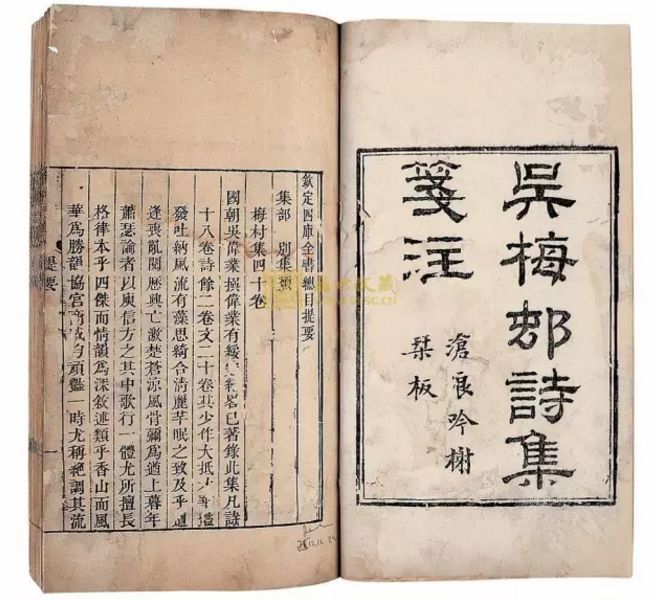 吳梅邨詩集
箋注
滄浪吟榭
栞板
欽定四庫全書總目提要
集部 別集類
梅村集四十卷
國朝吳偉業撰偉業有綏寇紀畧已著錄此集凡詩
十八卷詩餘二卷文二十卷其少作大抵才華豔
發吐納風流有藻思綺合清麗芊眠之致及乎遭
逢喪亂閱歷興亡激楚蒼涼風骨彌爲遒上暮年
蕭瑟論者以庾信方之其中歌行一體尤所擅長
格律本乎四傑而情韻爲深敘述類乎香山而風
華爲勝韻協宮商感均頑豔一時尤稱絕調其流
提要
一